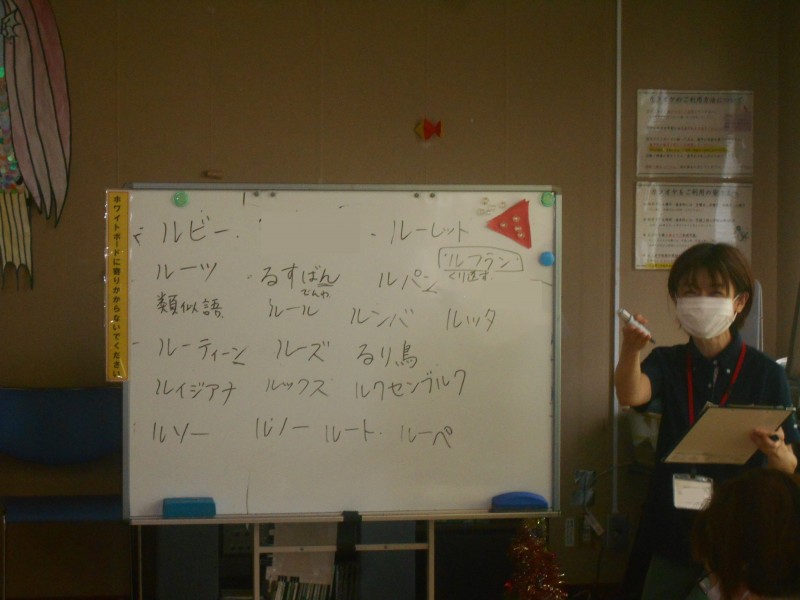 ホワイトボードに寄りかからないでください
ルビー ルーレット
ルフラン
くり返す
ルーツ るすばん ルパン
でんわ
類似語 ルール ルンバ ルッタ
ルーティーン ルーズ るり鳥
ルイジアナ ルックス ルクセンブルク
ルソー ルノー ルート ルーペ